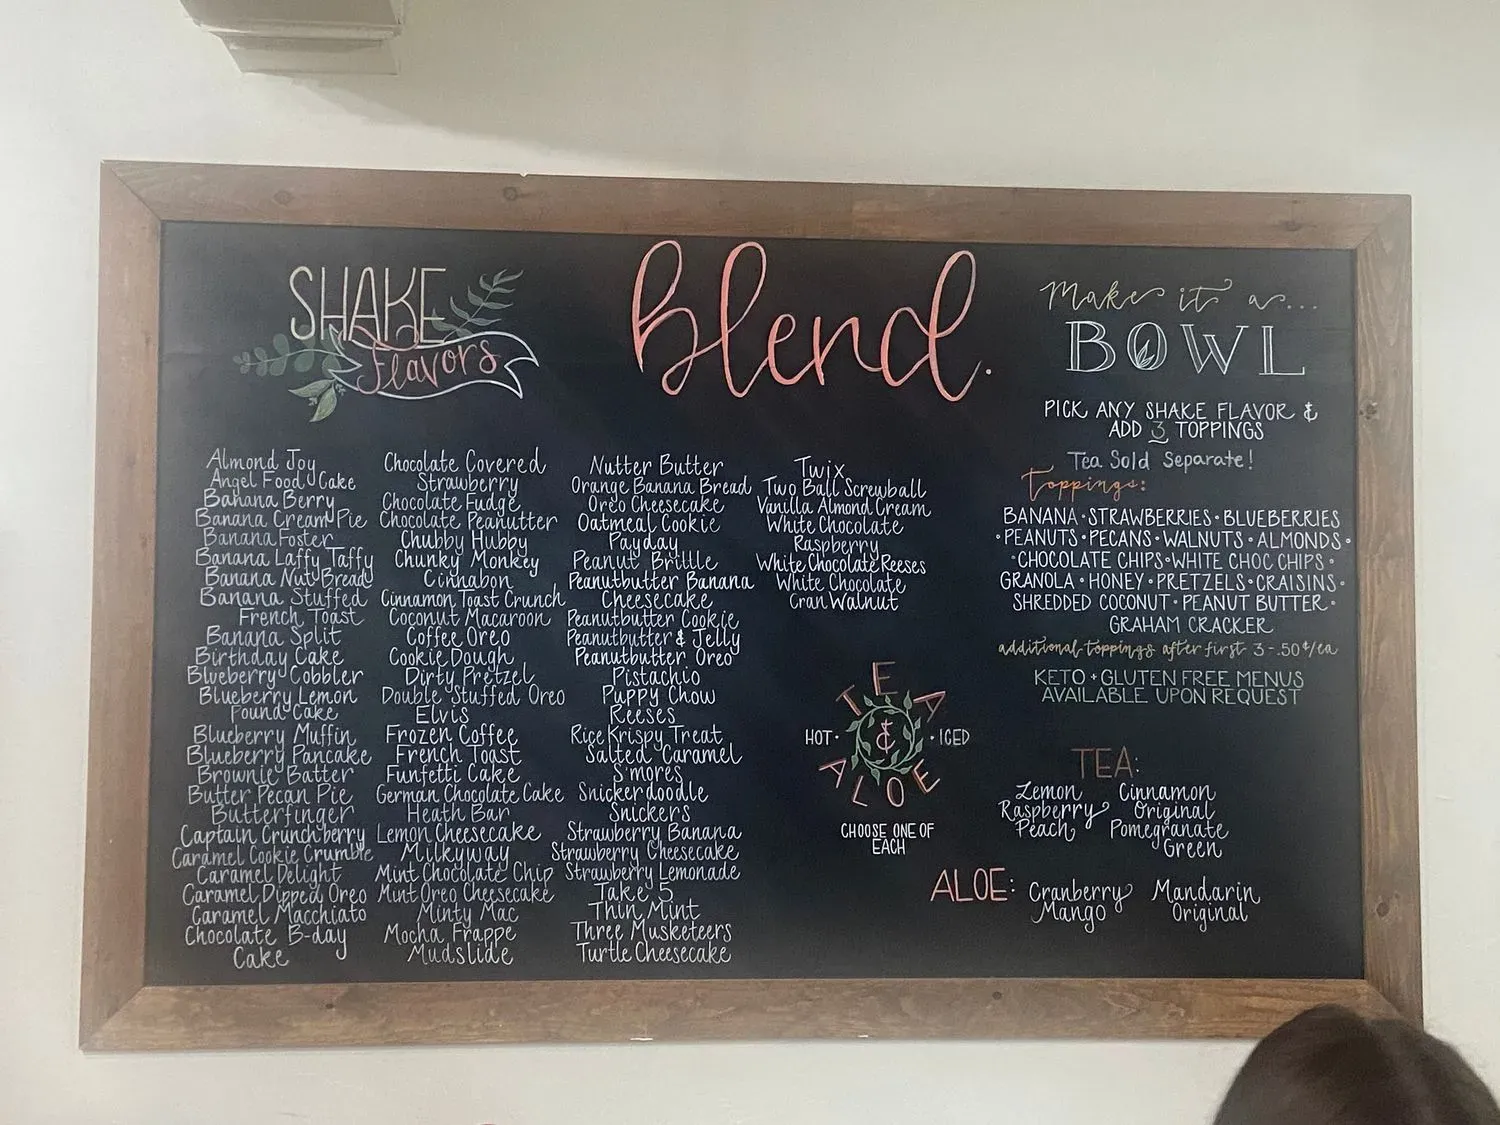 SHAKE
Flavors
blend.
Make it a...
BOWL
PICK ANY SHAKE FLAVOR &
ADD 3 TOPPINGS
Tea Sold Separate!
Almond Joy
Angel Food Cake
Banana Berry
Banana Cream Pie
Banana Foster
Banana Laffy Taffy
Banana Nut Bread
Banana Stuffed
French Toast
Banana Split
Birthday Cake
Blueberry Cobbler
Blueberry Lemon
Pound Cake
Blueberry Muffin
Blueberry Pancake
Brownie Batter
Butter Pecan Pie
Butterfinger
Captain Crunchberry
Caramel Cookie Crumble
Caramel Delight
Caramel Dipped Oreo
Caramel Macchiato
Chocolate B-day
Cake
Chocolate Covered
Strawberry
Chocolate Fudge
Chocolate Peanutter
Chubby Hubby
Chunky Monkey
Cinnabon
Cinnamon Toast Crunch
Coconut Macaroon
Coffee Oreo
Cookie Dough
Dirty Pretzel
Double Stuffed Oreo
Elvis
Frozen Coffee
French Toast
Funfetti Cake
German Chocolate Cake
Heath Bar
Lemon Cheesecake
Milkyway
Mint Chocolate Chip
Mint Oreo Cheesecake
Minty Mac
Mocha Frappe
Mudslide
Nutter Butter
Orange Banana Bread
Oreo Cheesecake
Oatmeal Cookie
Payday
Peanut Brillle
Peanutbutter Banana
Cheesecake
Peanutbutter Cookie
Peanutbutter & Jelly
Peanutbutter Oreo
Pistachio
Puppy Chow
Reeses
Rice Krispy Treat
Salted Caramel
S'mores
Snickerdoodle
Snickers
Strawberry Banana
Strawberry Cheesecake
Strawberry Lemonade
Take 5
Thin Mint
Three Musketeers
Turtle Cheesecake
Twix
Two Ball Screwball
Vanilla Almond Cream
White Chocolate
Raspberry
White Chocolate Reeses
White Chocolate
Cran Walnut
Toppings:
BANANA • STRAWBERRIES • BLUEBERRIES
• PEANUTS • PECANS • WALNUTS • ALMONDS •
• CHOCOLATE CHIPS • WHITE CHOC CHIPS •
GRANOLA • HONEY • PRETZELS • CRAISINS •
SHREDDED COCONUT • PEANUT BUTTER •
GRAHAM CRACKER
additional toppings after first 3 - .50¢/ea
KETO + GLUTEN FREE MENUS
AVAILABLE UPON REQUEST
TEA
HOT • & • ICED
ALOE
CHOOSE ONE OF
EACH
TEA:
Lemon
Raspberry
Peach
Cinnamon
Original
Pomegranate
Green
ALOE:
Cranberry
Mango
Mandarin
Original